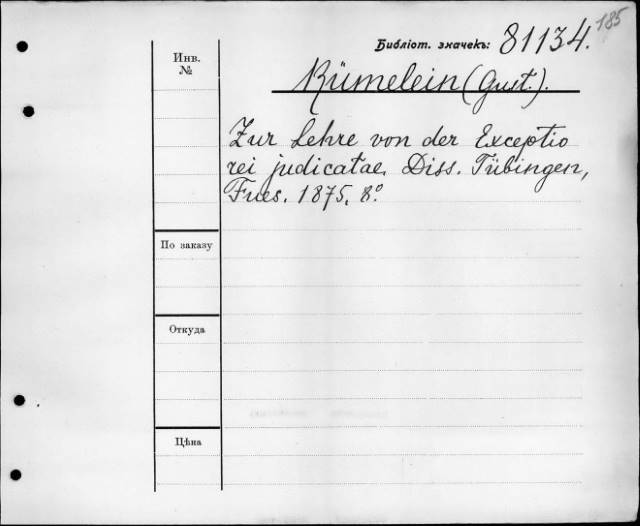 185
Библіот. значекъ: 81134.
Инв.
№
Rümelein (Gust.).
Zur Lehre von der Exceptio
rei judicatae. Diss. Tübingen,
Fues. 1875. 8º
По заказу
Откуда
Цѣна